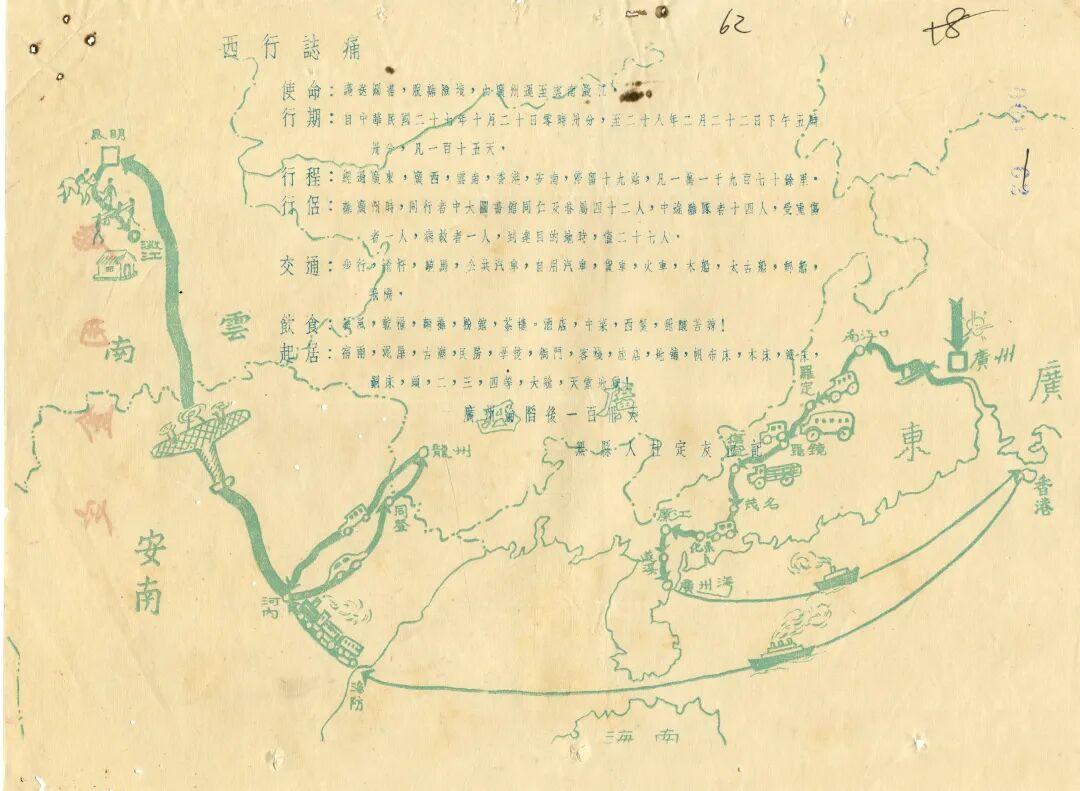 62
西行誌痛
使命：護送圖書，脫離險境，由廣州運至雲南澂江。
行期：自中華民國二十七年十月二十日零時卅分，至二十八年二月二十二日下午五時
卅分，凡一百十五天。
行程：經過廣東，廣西，雲南，香港，安南，停留十九站，凡一萬一千九百七十餘里。
行侶：離廣州時，同行者中大圖書館同仁及眷屬四十二人，中途離隊者十四人，受重傷
者一人，病故者一人，到達目的地時，僅二十七人。
交通：步行，滑竿，騎馬，公共汽車，自用汽車，貨車，火車，木船，太古船，郵船，
飛機。
飲食：餐風，乾糧，麵攤，粉館，茶樓，酒店，中菜，西餐，甜酸苦辣！
起居：宿雨，泥屋，古廟，民房，學校，衙門，客棧，旅店，地鋪，帆布床，木床，鐵床，
鋼床，頭，二，三，四等，大艙，天堂地獄！
廣州淪陷後一百卅天
縣人杜定友泣記
昆明
澂江
雲
南
廣
西
廣
東
廣州
南江口
羅定
羅鏡
茂名
化縣
廉江
遂溪
廣州灣
香港
龍州
同登
河內
海防
安南
海南